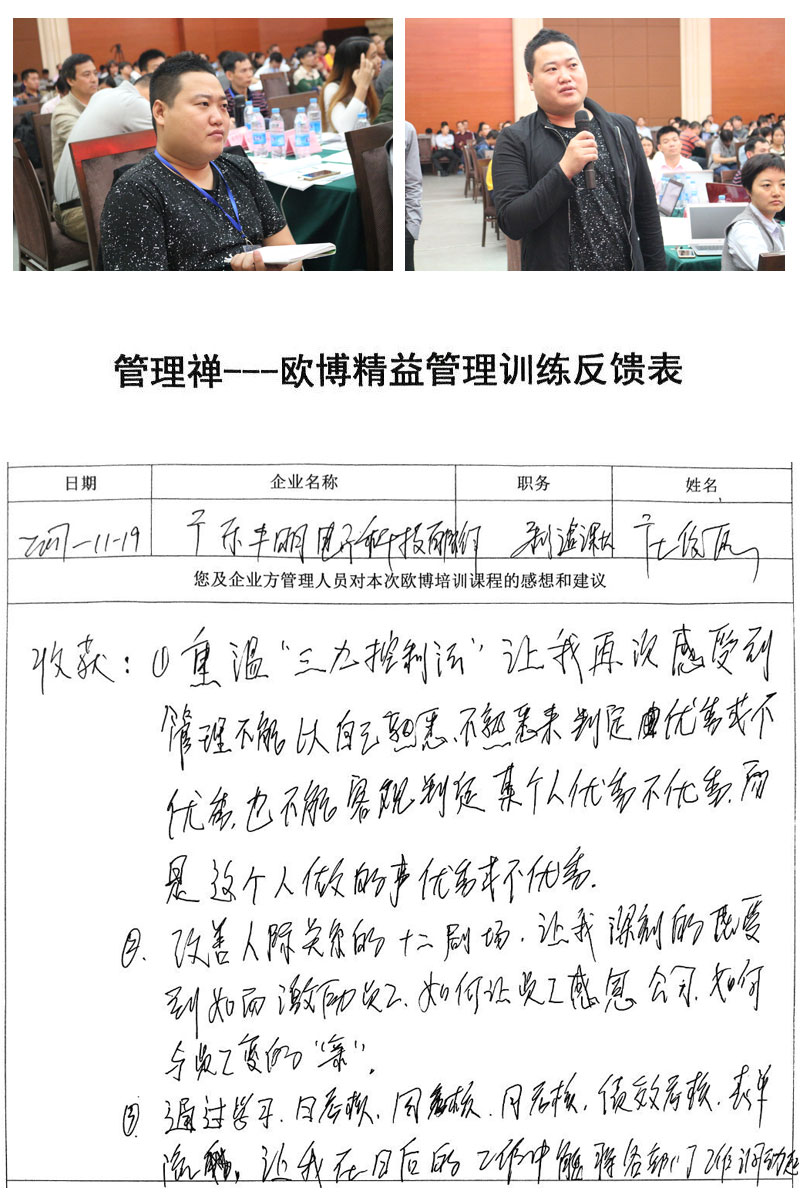 管理禅---欧博精益管理训练反馈表
日期 企业名称 职务 姓名
2017-11-19 广东丰明电子科技有限公司 制造课长
您及企业方管理人员对本次欧博培训课程的感想和建议
收获：①重温“三九控制法”让我再次感受到
管理不能以自己熟悉、不熟悉来判定优秀或不
优秀，也不能客观判定某个人优秀不优秀，而
是这个人做的事优秀或不优秀．
②．改善人际关系的十二剧场，让我深刻的感受
到如而激励员工、如何让员工感恩公司、如何
与员工变的“亲”．
③．通过学习、日考核、周考核、月考核、绩效考核、表单
让我在日后的工作中能将各部门工作调动起